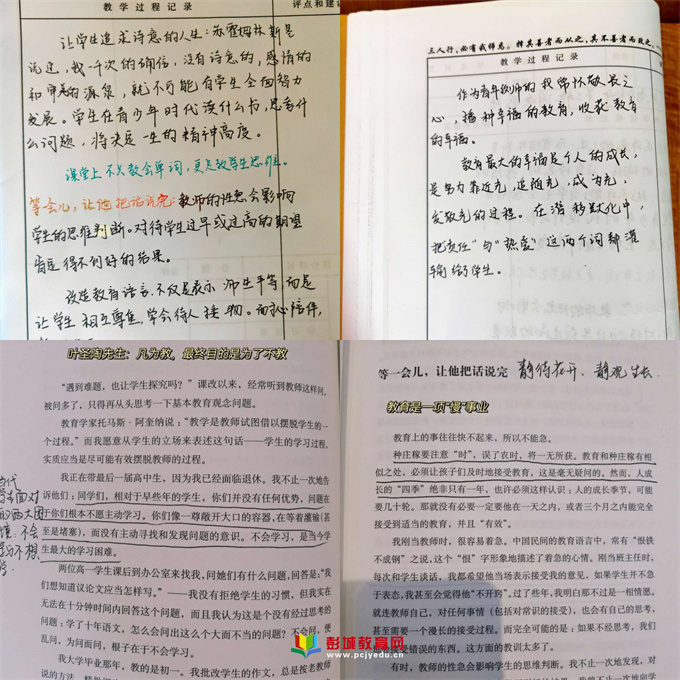 教学过程记录
评点和建议
让学生追求诗意的人生：苏霍姆林斯基
说过，我一千次的确信，没有诗意的，感情的
和审美的源泉，就不可能有学生全面智力
发展。学生在青少年时代读什么书，思考什
么问题，将决定一生的精神高度。
课堂上不只教会单词，更是教学生思维。
等会儿，让他把话说完：教师的性急会影响
学生的思维判断。对待学生过早或过高的期望
肯定得不到好的结果。
这是教育语言，不仅是表示师生平等，而是
让学生相互尊重，学会待人接物。而初心陪伴，
三人行，必有我师焉。择其善者而从之，其不善者而改之。
教学过程记录
作为青年教师的我常怀敬畏之
心，播种幸福的教育，收获教育
的幸福。
教育最大的幸福是个人的成长，
是努力靠近光，追随光，成为光，
发散光的过程。在潜移默化中，
把“责任”与“热爱”这两个词都灌
输给学生。
叶圣陶先生：凡为教，最终目的是为了不教
“遇到难题，也让学生探究吗？”课改以来，经常听到教师这样问，
被问多了，只得再从头思考一下基本教育观念问题。
教育学家托马斯·阿奎纳说：“教学是教师试图借以摆脱学生的一
个过程。”而我愿意从学生的立场来表述这句话——学生的学习过程，
实质应当是尽可能有效摆脱教师的过程。
我正在带最后一届高中生，因为我已经面临退休。我不止一次地告
诉他们：同学们，相对于早些年的学生，你们并没有任何优势，问题在
于你们根本不愿意主动学习。你们像一尊敞开大口的容器，在等着灌输（甚
至是堵塞），而没有主动寻找和发现问题的意识。不会学习，是当今学
生最大的学习困难。
两位高一学生课后到办公室来找我，问她们有什么问题，回答是：“我
们想知道议论文应当怎样写。”——我没有拒绝学生的习惯，但我实在
无法在十分钟时间内回答这个问题，而且我认为这是个没有经过思考的
问题：学了十年语文，怎么会问出这么个大而不当的问题？不会问，便
乱问，为问而问，根子在于不会学习。
我大学毕业那年，教的是初一。我批改学生的作文，总是按老教师
等一会儿，让他把话说完
静待花开、静观生长.
教育是一项“慢”事业
教育上的事往往快不起来，所以不能急。
种庄稼要注意“时”，误了农时，将一无所获。教育和种庄稼有相
似之处，必须让孩子们及时地接受教育，这是毫无疑问的。然而，人成
长的“四季”绝非只有一年，也许必须这样认识：人的成长季节，可能
要几十年。那就没有必要一定要他在一天之内，或者三个月之内能完全
接受到适当的教育，并且“有效”。
我刚当教师时，很容易着急。中国民间的教育语言中，常有“恨铁
不成钢”之说，这个“恨”字形象地描述了着急的心情。刚当班主任时，
每次和学生谈话，我都希望他当场表示接受我的意见，如果学生并不急
于表态，我甚至会觉得他“不开窍”。过了些年，我明白那不过是一相情愿。
就连教师自己，对任何事情（包括对常识的接受），也会有自己的思考，
甚至需要一个漫长的接受过程。而完全可能的是：如果不经思考，我们
受错误的东西。这方面的教训太多了。
有时，教师的性急会影响学生的思维判断。我不止一次地发现，对
彭城教育网
www.pcjyedu.cn